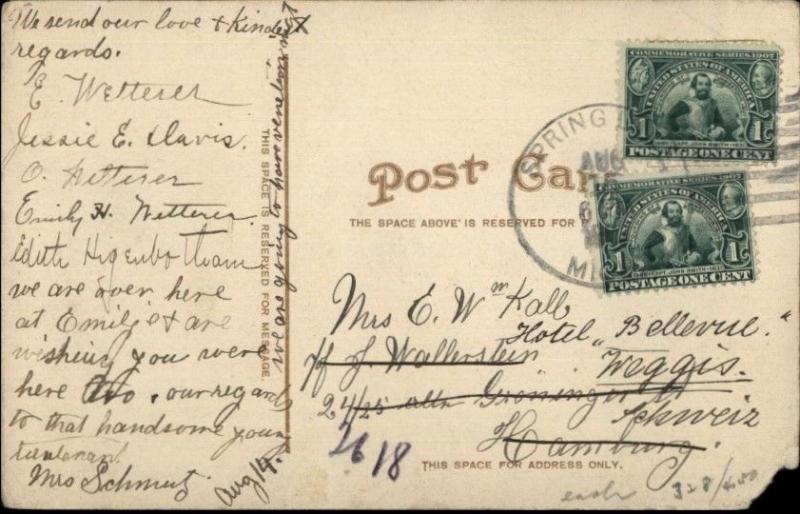 We send our love & kindest
regards.
E. Wetterer
Jessie E. Davis.
O. Wetterer
Emily H. Wetterer.
Edith Higenbotham
we are over here
at Emilie & are
wishing you were
here too, our regards
to that handsome young
Lieutenant
Mrs Schmutz
Aug 14.
we are going to have venison roast
THIS SPACE IS RESERVED FOR MESSAGE
Post Card
THE SPACE ABOVE IS RESERVED FOR
COMMEMORATIVE SERIES 1907
UNITED STATES OF AMERICA
1 1
POSTAGE ONE CENT
COMMEMORATIVE SERIES 1907
UNITED STATES OF AMERICA
1 1
POSTAGE ONE CENT
SPRING L
AUG
MI
Mrs E. Wm Kalb
Hotel „Bellevue."
J. Wallerstein
Weggis.
24/25 Groninger
Schweiz
Hamburg.
26 18
THIS SPACE FOR ADDRESS ONLY.
each 328/